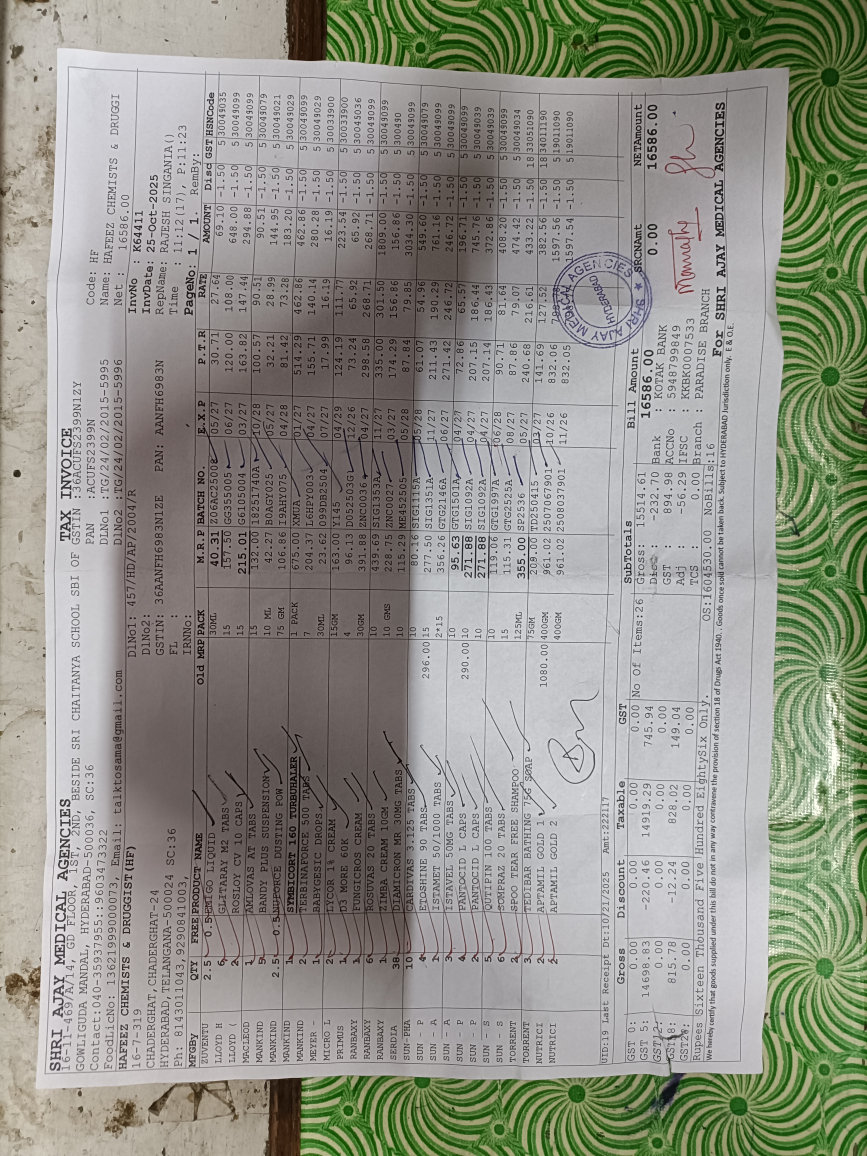 SHRI AJAY MEDICAL AGENCIES
16-11-469/A/14, GD FLOOR, 1ST, 2ND, BESIDE SRI CHAITANYA SCHOOL SBI OF
GOWLIGUDA MANDAL, HYDERABAD-500036, SC:36
Contact:040-35937955::9603473322
FoodlicNo: 13621999000073, Email: talktosama@gmail.com
TAX INVOICE
GSTIN :36ACUFS2399N1ZY
PAN :ACUFS2399N
DLNo1 :TG/24/02/2015-5995
DlNo2 :TG/24/02/2015-5996
Code: HF
Name: HAFEEZ CHEMISTS & DRUGGI
Net : 16586.00
HAFEEZ CHEMISTS & DRUGGIST(HF)
16-7-319
CHADERGHAT, CHADERGHAT-24
HYDERABAD, TELANGANA-500024 SC:36
Ph: 8143011043, 9290841003,
DlNo1: 457/HD/AP/2004/R
DlNo2:
GSTIN: 36AANFH6983N1ZE PAN: AANFH6983N
FL :
IRNNo:
InvNo : K64411
InvDate: 25-Oct-2025
RepName: RAJESH SINGANIA()
Time : 11:12(17), P:11:23
PageNo: 1 / 1. RemBy:
MFGBy QTY FREE PRODUCT NAME Old MRP PACK M.R.P BATCH NO. E.X.P P.T.R RATE AMOUNT Disc GST HSNCode
ZUVENTU 2.5 0.5 EMIGO LIQUID 30ML 40.31 05/27 30.71 27.64 69.10 -1.50 5 30049035
LLOYD H 6 GLITARAY M2 TABS 15 157.50 GG355005 06/27 120.00 108.00 648.00 -1.50 5 30049099
LLOYD ( 2 ROSILOY CV 10 CAPS 15 215.01 G6105004 03/27 163.82 147.44 294.88 -1.50 5 30049099
MACLEOD 1 AMLOVAS AT TABS 15 132.00 18251740A 10/28 100.57 90.51 90.51 -1.50 5 30049079
MANKIND 5 BANDY PLUS SUSPENSION 10 ML 42.27 BOAGY025 05/27 32.21 28.99 144.95 -1.50 5 30049021
MANKIND 2.5 0.5 DUSTING POW 75 GM 106.86 I9AHY075 04/28 81.42 73.28 183.20 -1.50 5 30049029
MANKIND 1 SYMBICORT 160 TURBUHALER 1 PACK 675.00 XMUA 01/27 514.29 462.86 462.86 -1.50 5 30049099
MANKIND 2 TERBINAFORCE 500 TABS 7 204.37 L6HPY003 04/27 155.71 140.14 280.28 -1.50 5 30049029
MEYER - 1 BABYGESIC DROPS 30ML 23.62 D99DB2504 07/27 17.99 16.19 16.19 -1.50 5 30033900
MICRO L 2 LYCOR 1% CREAM 15GM 163.00 Y145 04/29 124.19 111.77 223.54 -1.50 5 30033900
PRIMUS 1 D3 MORE 60K 4 96.13 DO52503G 12/26 73.24 65.92 65.92 -1.50 5 30045036
RANBAXY 1 FUNGICROS CREAM 30GM 391.88 ZNC0036 04/27 298.58 268.71 268.71 -1.50 5 30049099
RANBAXY 6 ROSUVAS 20 TABS 10 439.69 SIG1353A 11/27 335.00 301.50 1809.00 -1.50 5 30049099
RANBAXY 1 ZIMBA CREAM 10GM 10 GMS 228.75 ZNC0027 03/27 174.29 156.86 156.86 -1.50 5 300490
SERDIA 38 DIAMICRON MR 30MG TABS 10 115.29 ME452505 05/28 87.84 79.85 3034.30 -1.50 5 30049099
SUN-PHA 10 CARDIVAS 3.125 TABS 10 80.16 SIG1115A 05/28 61.07 54.96 549.60 -1.50 5 30049079
SUN - P 4 ETOSHINE 90 TABS 296.00 15 277.50 SIG1351A 11/27 211.43 190.29 761.16 -1.50 5 30049099
SUN - A 1 ISTAMET 50/1000 TABS 2*15 356.26 GTG2146A 06/27 271.42 246.72 246.72 -1.50 5 30049099
SUN - A 3 ISTAVEL 50MG TABS 10 95.63 GTG1501A 04/27 72.86 65.57 196.71 -1.50 5 30049099
SUN - P 4 PANTOCID L CAPS 290.00 10 271.88 SIG1092A 04/27 207.15 186.44 745.76 -1.50 5 30049039
SUN - P 2 PANTOCID L CAPS 10 271.88 SIG1092A 04/27 207.14 186.43 372.86 -1.50 5 30049039
SUN - S 5 QUTIPIN 100 TABS 10 119.06 GTG1997A 06/28 90.71 81.64 408.20 -1.50 5 30049099
SUN - S 6 SOMPRAZ 20 TABS 15 115.31 GTG2525A 08/27 87.86 79.07 474.42 -1.50 5 30049034
TORRENT 2 SPOO TEAR FREE SHAMPOO 125ML 355.00 SP2536 05/27 240.68 216.61 433.22 -1.50 18 33051090
TORRENT 3 TEDIBAR BATHING 75G SOAP 75GM 209.00 TD250415 03/27 141.69 127.52 382.56 -1.50 18 34011190
NUTRICI 2 APTAMIL GOLD 1 1080.00 400GM 961.02 2507067901 10/26 832.06 1597.56 -1.50 5 19011090
NUTRICI 2 APTAMIL GOLD 2 400GM 961.02 2508037901 11/26 832.05 1597.54 -1.50 5 19011090
SHRI AJAY MEDICAL AGENCIES
HYDERABAD
UID:19 Last Receipt Dt:10/21/2025 Amt:222117
Gross Discount Taxable GST
GST 0: 0.00 0.00 0.00 0.00
GST 5: 14698.83 -220.46 14919.29 745.94
GST12: 0.00 0.00 0.00 0.00
GST18: 815.78 -12.24 828.02 149.04
GST28: 0.00 0.00 0.00 0.00
SubTotals
No Of Items:26 Gross: 15514.61
Disc : -232.70
GST : 894.98
Adj : -56.29
TCS : 0.00
Bill Amount SRCNAmt NETAmount
16586.00 0.00 16586.00
Bank : KOTAK BANK
ACCNo : 5948799849
IFSC : KKBK0007533
Branch : PARADISE BRANCH
Rupees Sixteen Thousand Five Hundred EightySix Only. OS:1604530.00 NoBills:16
For SHRI AJAY MEDICAL AGENCIES
We hereby certify that goods supplied under this bill do not in any way contravene the provision of section 18 of Drugs Act 1940. . Goods once sold cannot be taken back. Subject to HYDERABAD Jurisdiction only. E & O.E.